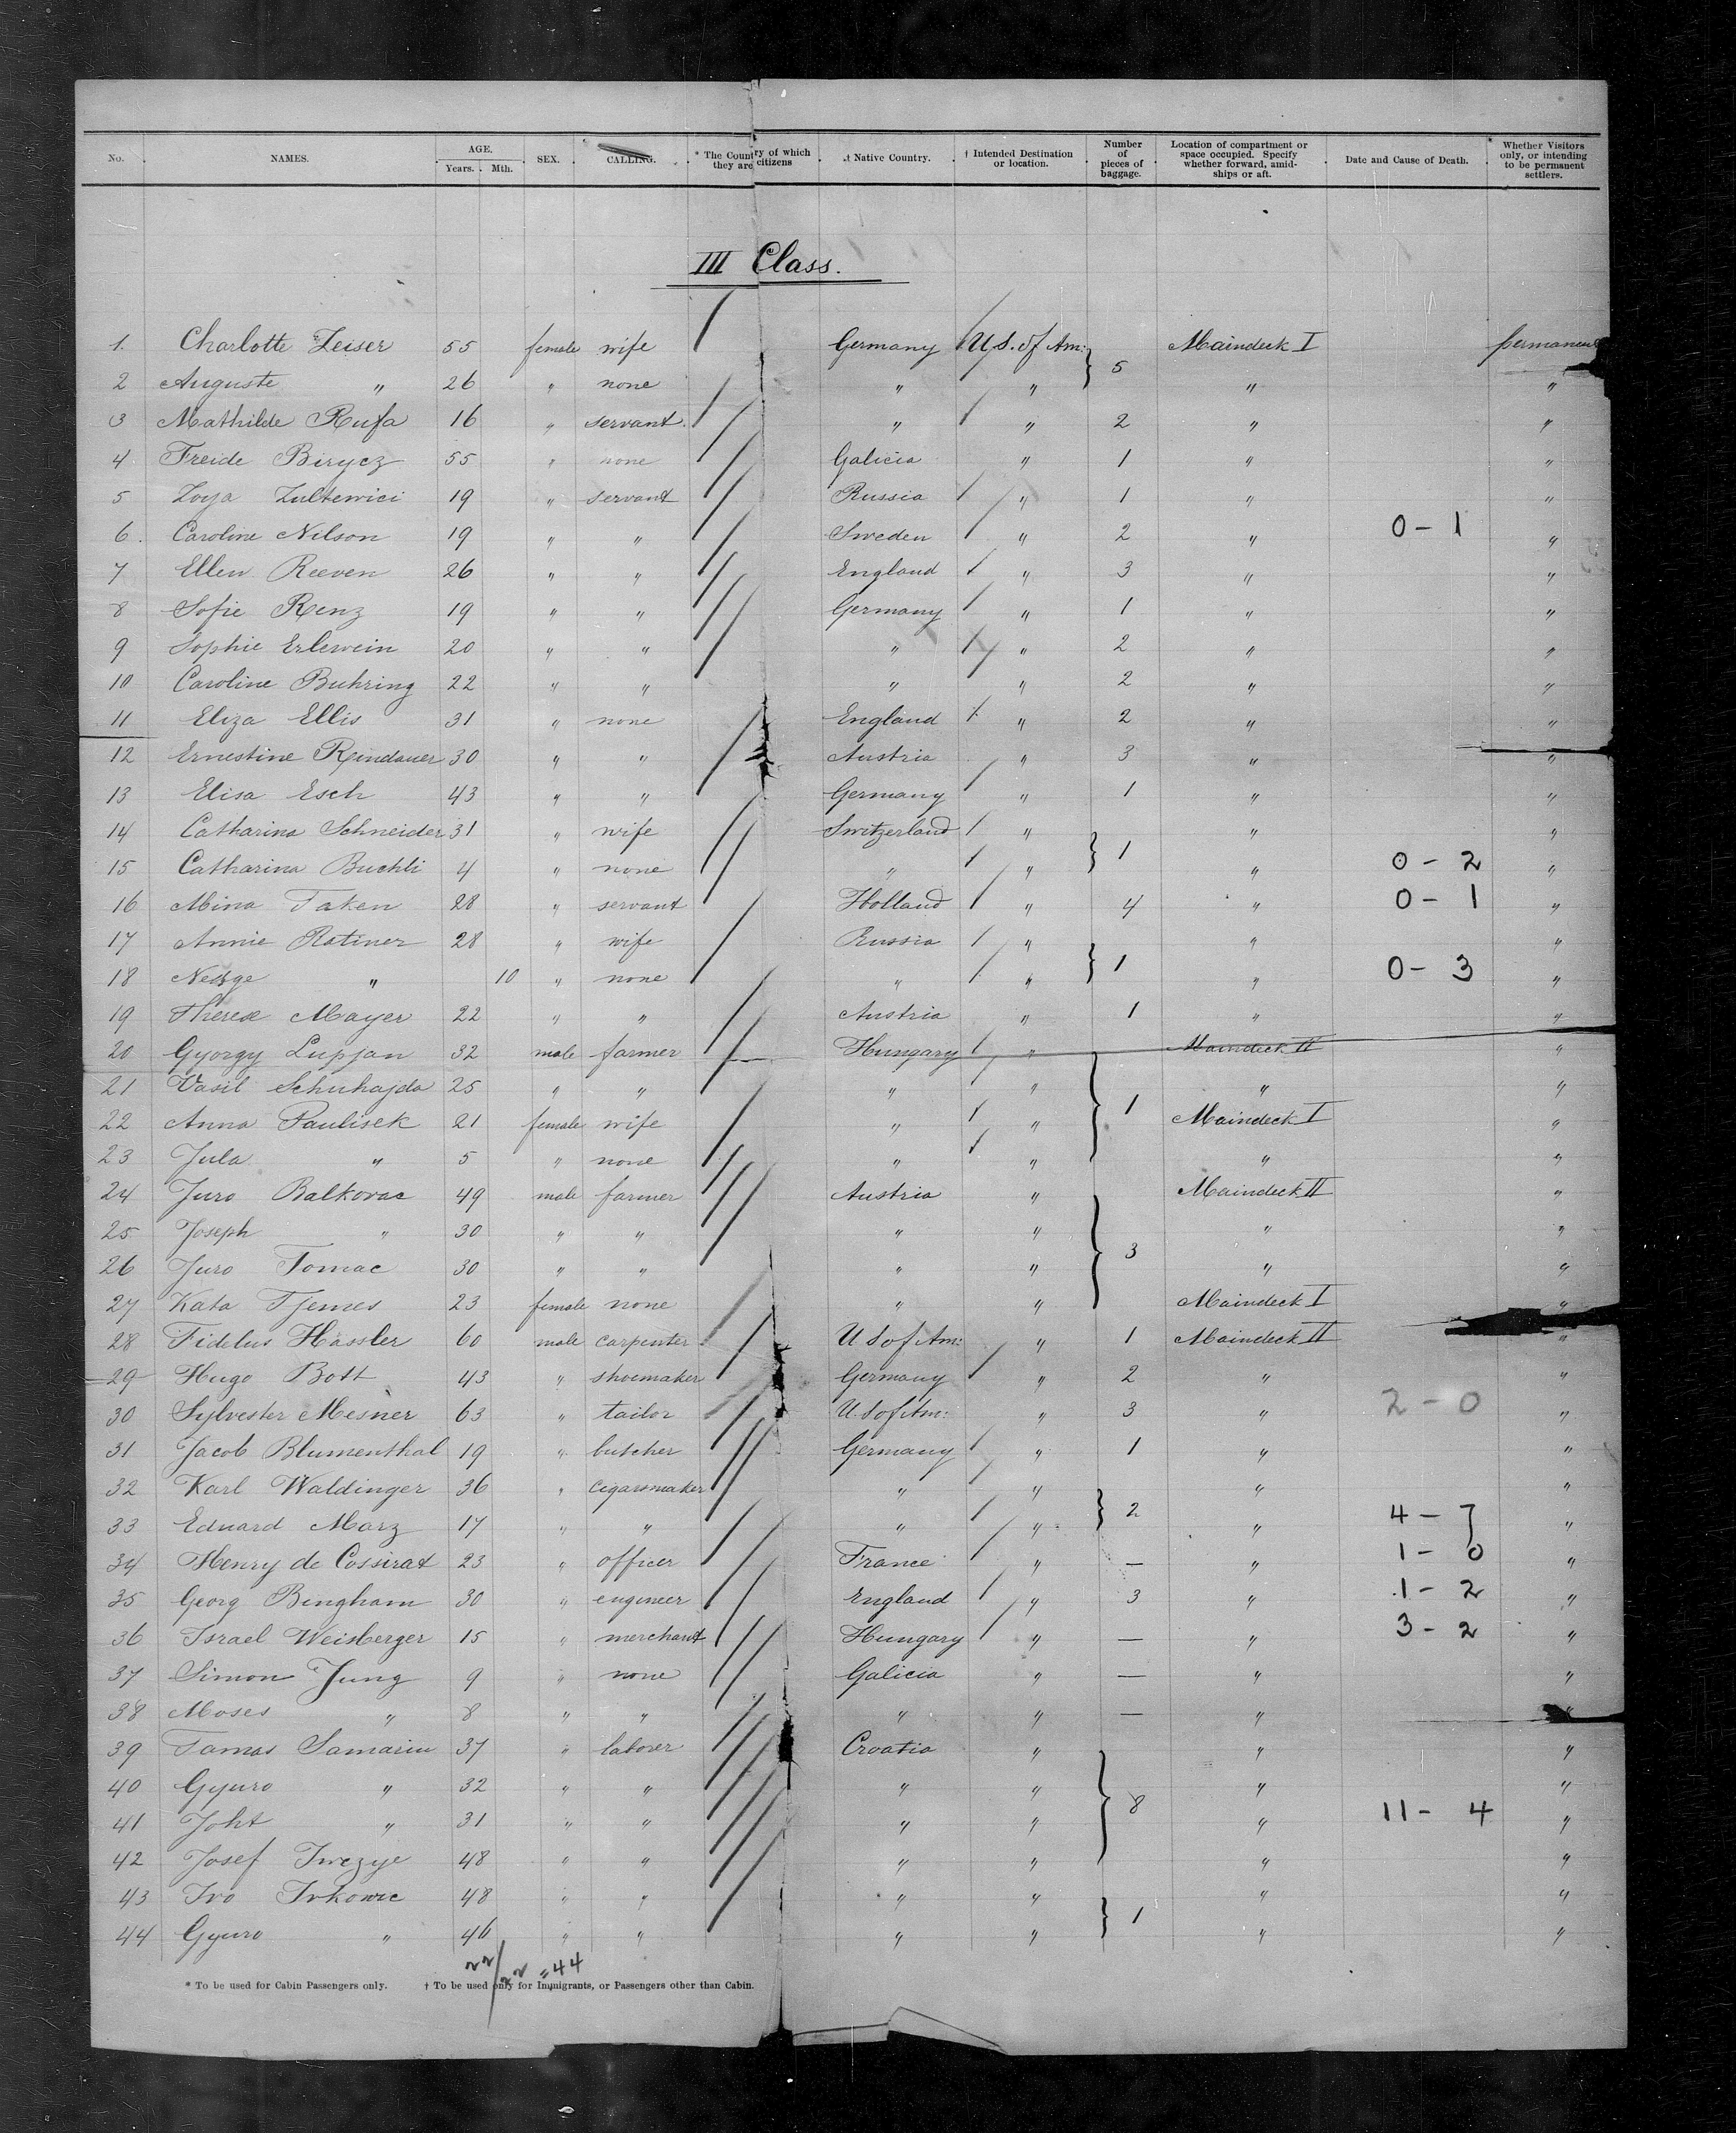 No. NAMES. AGE. Years. Mth. SEX. CALLING. * The Country of which they are citizens † Native Country. † Intended Destination or location. Number of pieces of baggage. Location of compartment or space occupied. Specify whether forward, amidships or aft. Date and Cause of Death. Whether Visitors only, or intending to be permanent settlers.
III Class.
1. Charlotte Zeiser 55 female wife Germany U.S. of Am: } 5 Maindeck I permanent
2 Auguste " 26 " none " " " "
3 Mathilde Rufa 16 " servant. " " 2 " "
4 Freide Birycz 55 " none Galicia " 1 " "
5 Zoya Zultewici 19 " servant Russia " 1 " "
6. Caroline Nilson 19 " " Sweden " 2 " 0-1 "
7 Ellen Reeven 26 " " England " 3 " "
8 Sofie Renz 19 " " Germany " 1 " "
9 Sophie Erlewein 20 " " " " 2 " "
10 Caroline Buhring 22 " " " " 2 " "
11 Eliza Ellis 31 " none England " 2 " "
12 Ernestine Rindauer 30 " " Austria " 3 " "
13 Elisa Esch 43 " " Germany " 1 " "
14 Catharina Schneider 31 " wife Switzerland " } 1 " "
15 Catharina Buchli 4 " none " " " 0-2 "
16 Mina Taken 28 " servant Holland " 4 " 0-1 "
17 Annie Ratiner 28 " wife Russia " } 1 " "
18 " 10 " none " " " 0-3 "
19 Therese Mayer 22 " " Austria " 1 " "
20 Gyorgy Lupjan 32 male farmer Hungary " Maindeck II "
21 Vasil Schuhajda 25 " " " " } 1 " "
22 Anna Paulisek 21 female wife " " Maindeck I "
23 Jula " 5 " none " " " "
24 Juro Balkovac 49 male farmer Austria " Maindeck II "
25 Joseph " 30 " " " " } 3 " "
26 Juro Tomac 30 " " " " " "
27 Kata Tjemes 23 female none " " Maindeck I "
28 Fidelus Hassler 60 male carpenter U S of Am: " 1 Maindeck II "
29 Hugo Bott 43 " shoemaker Germany " 2 " "
30 Sylvester Mesner 63 " tailor U. S of Am: " 3 " 2-0 "
31 Jacob Blumenthal 19 " butcher Germany " 1 " "
32 Karl Waldinger 36 " cigarsmaker " " } 2 " "
33 Eduard Marz 17 " " " " " 4-7 "
34 Henry de Cossirat 23 " officer France " — " 1-0 "
35 Georg Bingham 30 " engineer England " 3 " 1-2 "
36 Israel Weisberger 15 " merchant Hungary " — " 3-2 "
37 Simon Jung 9 " none Galicia " — " "
38 Moses " 8 " " " " — " "
39 Tamas Samariu 37 " laborer Croatia " " "
40 Gyuro " 32 " " " " } 8 " "
41 Joht " 31 " " " " " 11-4 "
42 Josef Iwczye 48 " " " " " "
43 Ivo Ivkowic 48 " " " " } 1 " "
44 Gyuro " 46 " " " " " "
22/22 = 44
* To be used for Cabin Passengers only. † To be used only for Immigrants, or Passengers other than Cabin.